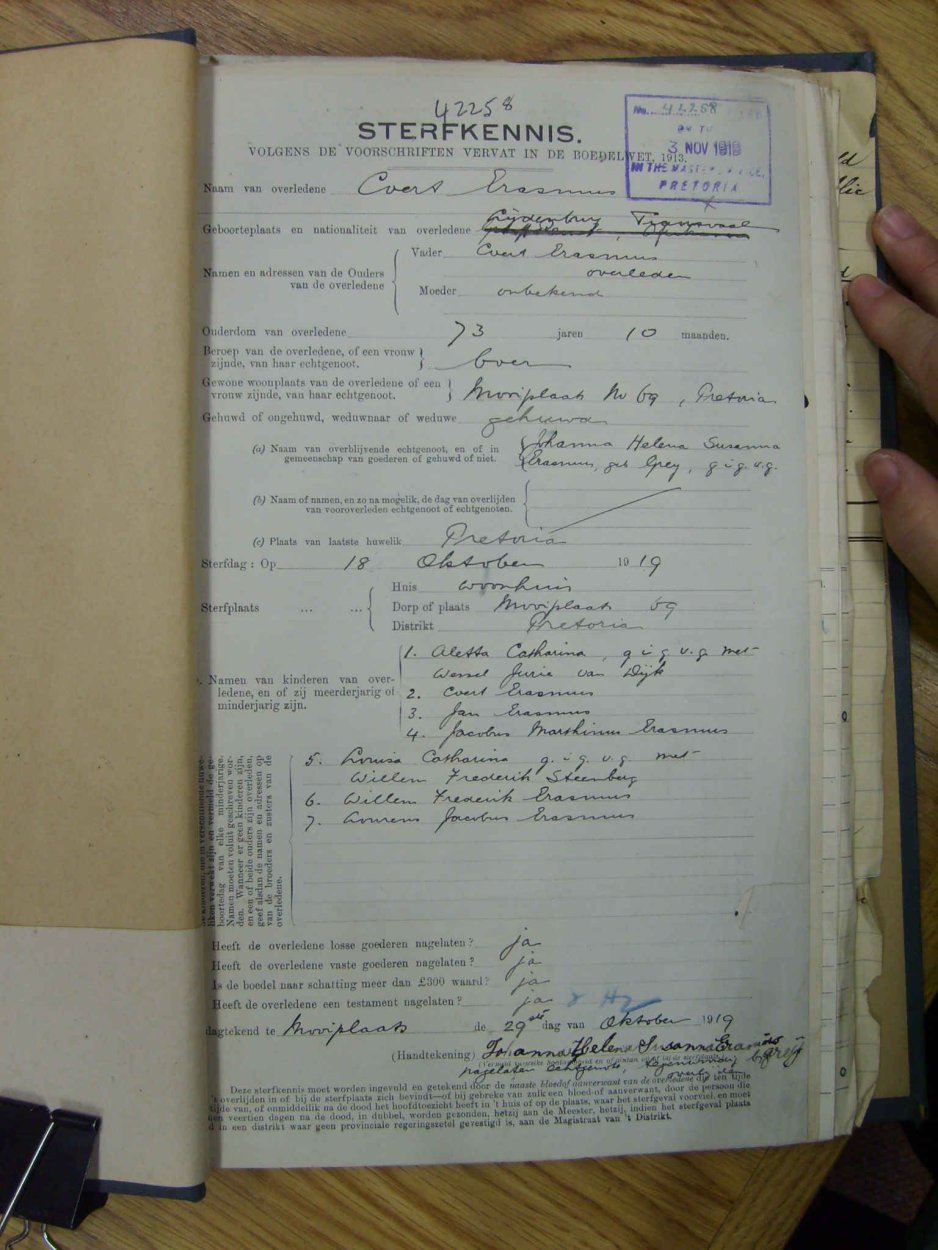 42258
STERFKENNIS.
VOLGENS DE VOORSCHRIFTEN VERVAT IN DE BOEDELWET, 1913.
No. 42258
3 NOV 1919
IN THE MASTER'S OFFICE,
PRETORIA
Naam van overledene Evert Erasmus
Geboorteplaats en nationaliteit van overledene Lydenburg Transvaal
Namen en adressen van de Ouders van de overledene
Vader Evert Erasmus
overleden
Moeder onbekend
Ouderdom van overledene 73 jaren 10 maanden.
Beroep van de overledene, of een vrouw
zijnde, van haar echtgenoot. boer
Gewone woonplaats van de overledene of een
vrouw zijnde, van haar echtgenoot. Mooiplaats No 69, Pretoria
Gehuwd of ongehuwd, weduwnaar of weduwe gehuwd
(a) Naam van overblijvende echtgenoot, en of in
gemeenschap van goederen of gehuwd of niet.
Johanna Helena Susanna
Erasmus, geb Grey, g i g. v. g.
(b) Naam of namen, en zo na mogelik, de dag van overlijden
van vooroverleden echtgenoot of echtgenoten.
(c) Plaats van laatste huwelik Pretoria
Sterfdag : Op 18 Oktober 1919
Sterfplaats ... ...
Huis woonhuis
Dorp of plaats Mooiplaats 69
Distrikt Pretoria
Namen van kinderen van over-
ledene, en of zij meerderjarig of
minderjarig zijn.
1. Aletta Catharina, g i g v. g met
Wessel Jurie van Dijk
2. Evert Erasmus
3. Jan Erasmus
4. Jacobus Marthinus Erasmus
5. Louisa Catharina g. i g. v. g met
Willem Frederik Steenberg
6. Willem Frederik Erasmus
7. Lourens Jacobus Erasmus
liken verwekt zijn en vermeld de ge-
boortedag van elke minderjarige.
Namen moeten voluit geschreven wor-
den. Wanneer er geen kinderen zijn,
en een of beide ouders zijn overleden,
geef alsdan de namen en adressen op
van de broeders en zusters van de
overledene.
Heeft de overledene losse goederen nagelaten? ja
Heeft de overledene vaste goederen nagelaten? ja
Is de boedel naar schatting meer dan £300 waard? ja
Heeft de overledene een testament nagelaten? ja
dagtekend te Mooiplaats de 29ste dag van Oktober 1919
(Handtekening) Johanna Helena Susanna Erasmus
nagelaten echtgenote, tegenwoordig bij
overlijden
Deze sterfkennis moet worden ingevuld en getekend door de naaste bloedof aanverwant van de overledene die ten tijde
't overlijden in of bij de sterfplaats zich bevindt—of bij gebreke van zulk een bloed-of aanverwant, door de persoon die
tijde van, of onmiddellik na de dood het hoofdtoezicht heeft in 't huis of op de plaats, waar het sterfgeval voorviel, en moet
nen veertien dagen na de dood, in dubbel, worden gezonden, hetzij aan de Meester, hetzij, indien het sterfgeval plaats
d in een distrikt waar geen provinciale regeringszetel gevestigd is, aan de Magistraat van 't Distrikt.